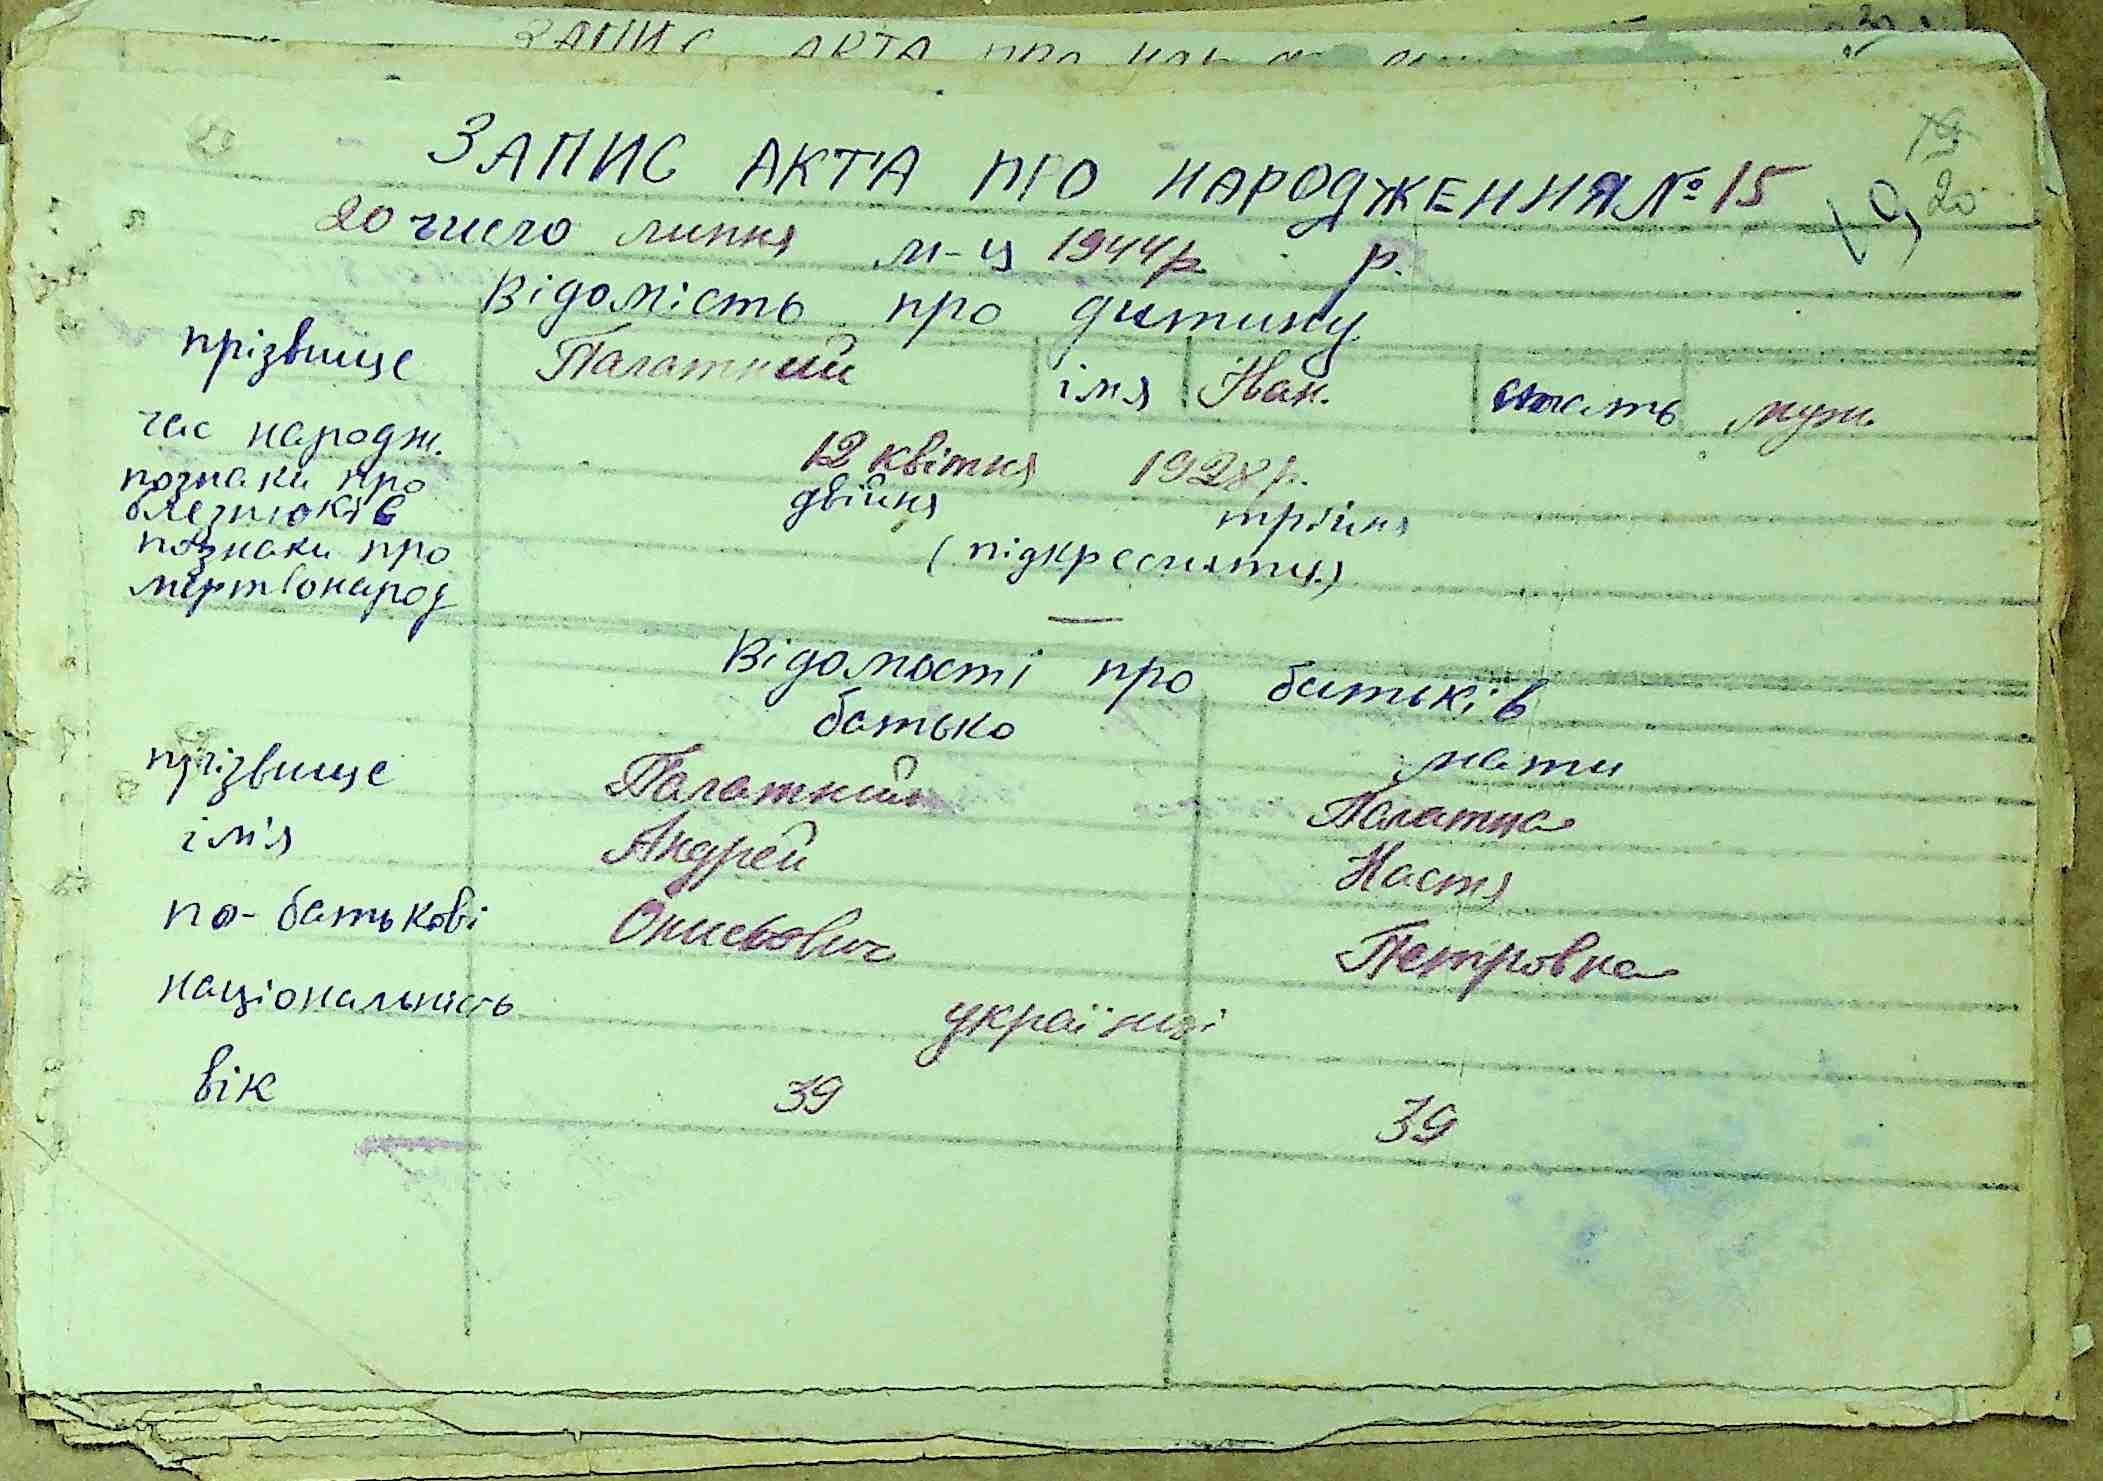 ЗАПИС АКТА ПРО
ЗАПИС АКТА ПРО НАРОДЖЕННЯ № 15
19
20
20 число липня м-ц 1944р р.
Відомість про дитину
прізвище Палатний ім'я Іван. стать муж.
час народж. 12 квітня 1928р.
познаки про двійня трійня
близнюків (підкреслити)
познаки про
мертвонарод —
Відомості про батьків
батько мати
прізвище Палатний Палатна
ім'я Андрей Настя
по-батькові Онисьович Петровна
національність українці
вік 39 39